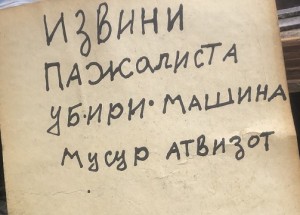 ИЗВИНИ
ПАЖАЛИСТА
УБИРИ МАШИНА
МУСУР АТВИЗОТ